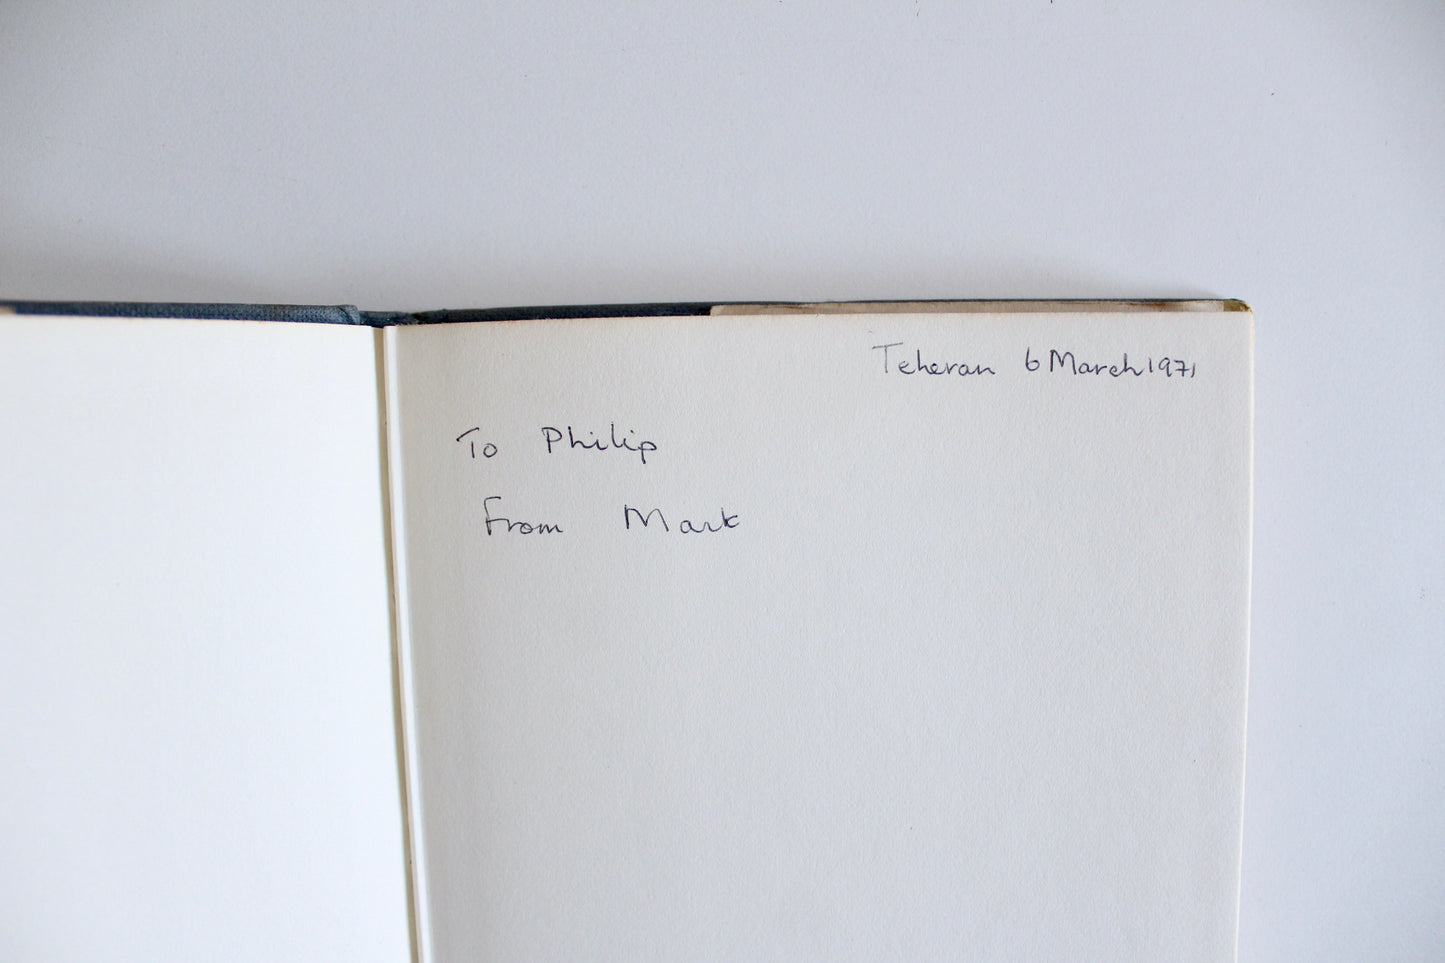 Teheran 6 March 1971
To Philip
From Mark